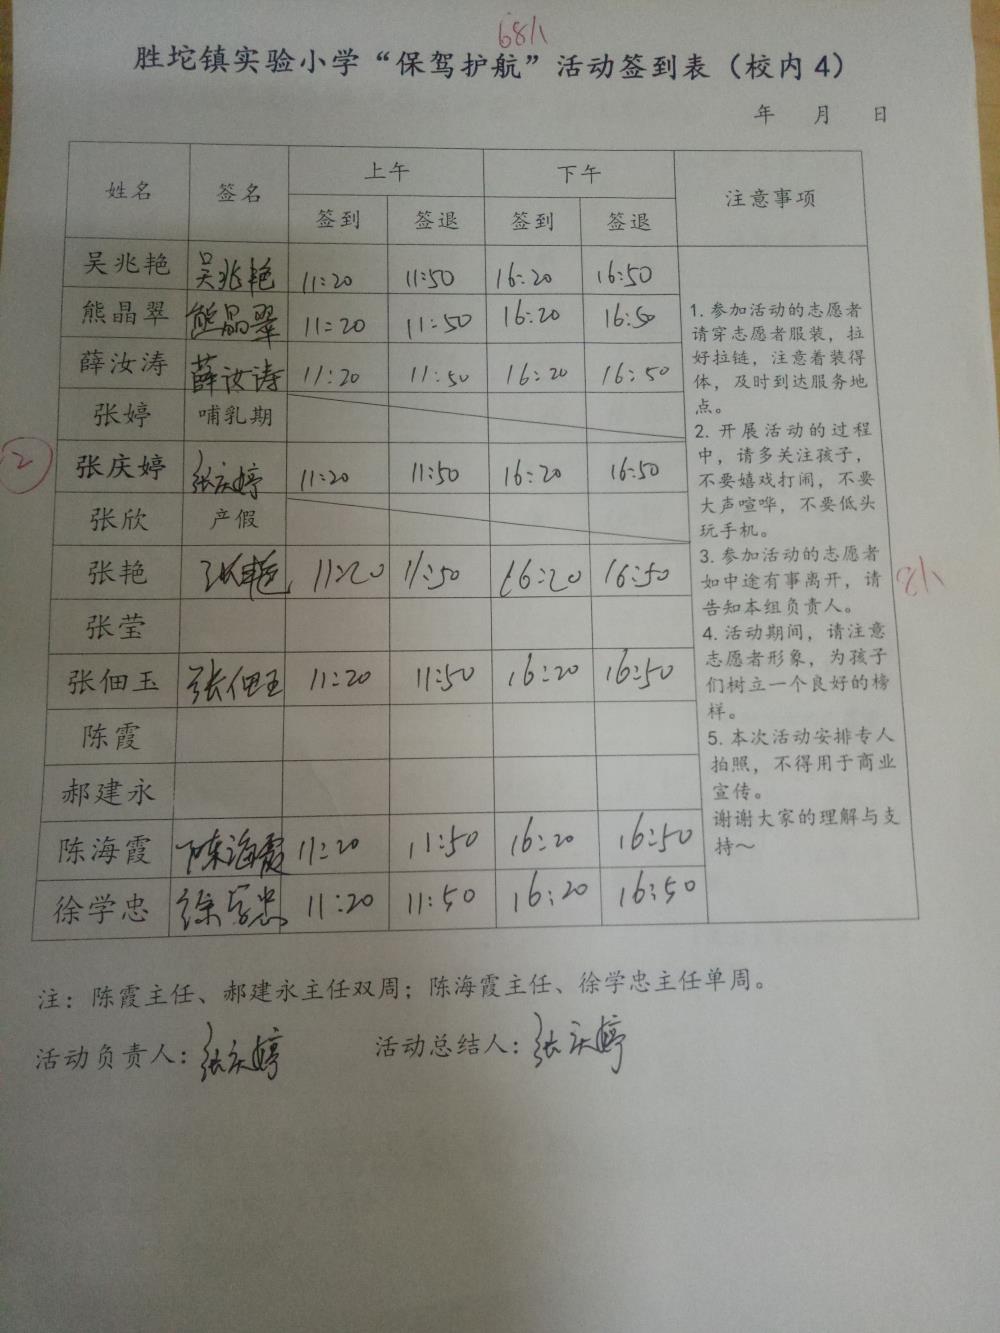 68人
胜坨镇实验小学“保驾护航”活动签到表（校内4）
年 月 日
姓名 签名 上午 下午 注意事项
签到 签退 签到 签退
吴兆艳 吴兆艳 11:20 11:50 16:20 16:50
熊晶翠 熊晶翠 11:20 11:50 16:20 16:50
薛汝涛 薛汝涛 11:20 11:50 16:20 16:50
张婷 哺乳期
2
张庆婷 张庆婷 11:20 11:50 16:20 16:50
张欣 产假
张艳 张艳 11:20 11:50 16:20 16:50
张莹
张佃玉 张佃玉 11:20 11:50 16:20 16:50
陈霞
郝建永
陈海霞 陈海霞 11:20 11:50 16:20 16:50
徐学忠 徐学忠 11:20 11:50 16:20 16:50
1. 参加活动的志愿者
请穿志愿者服装，拉
好拉链，注意着装得
体，及时到达服务地
点。
2. 开展活动的过程
中，请多关注孩子，
不要嬉戏打闹，不要
大声喧哗，不要低头
玩手机。
3. 参加活动的志愿者
如中途有事离开，请
告知本组负责人。
4. 活动期间，请注意
志愿者形象，为孩子
们树立一个良好的榜
样。
5. 本次活动安排专人
拍照，不得用于商业
宣传。
谢谢大家的理解与支
持～
8人
注：陈霞主任、郝建永主任双周；陈海霞主任、徐学忠主任单周。
活动负责人：张庆婷 活动总结人：张庆婷